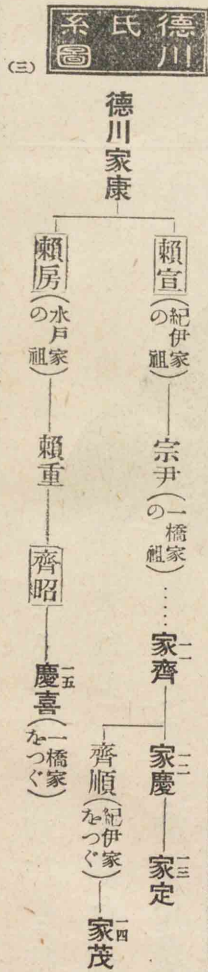 德川氏系圖
(三)
德川家康
賴宣(紀伊家の祖)
宗尹(一橋家の祖)
一一
家齊
一二
家慶
一三
家定
齊順(紀伊家をつぐ)
一四
家茂
賴房(水戶家の祖)
賴重
齊昭
一五
慶喜(一橋家をつぐ)